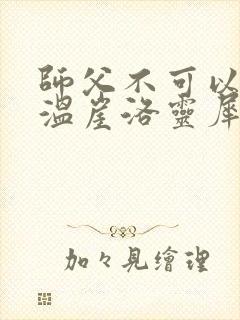 師父不可以
溫崖洛靈犀
加々見繪理